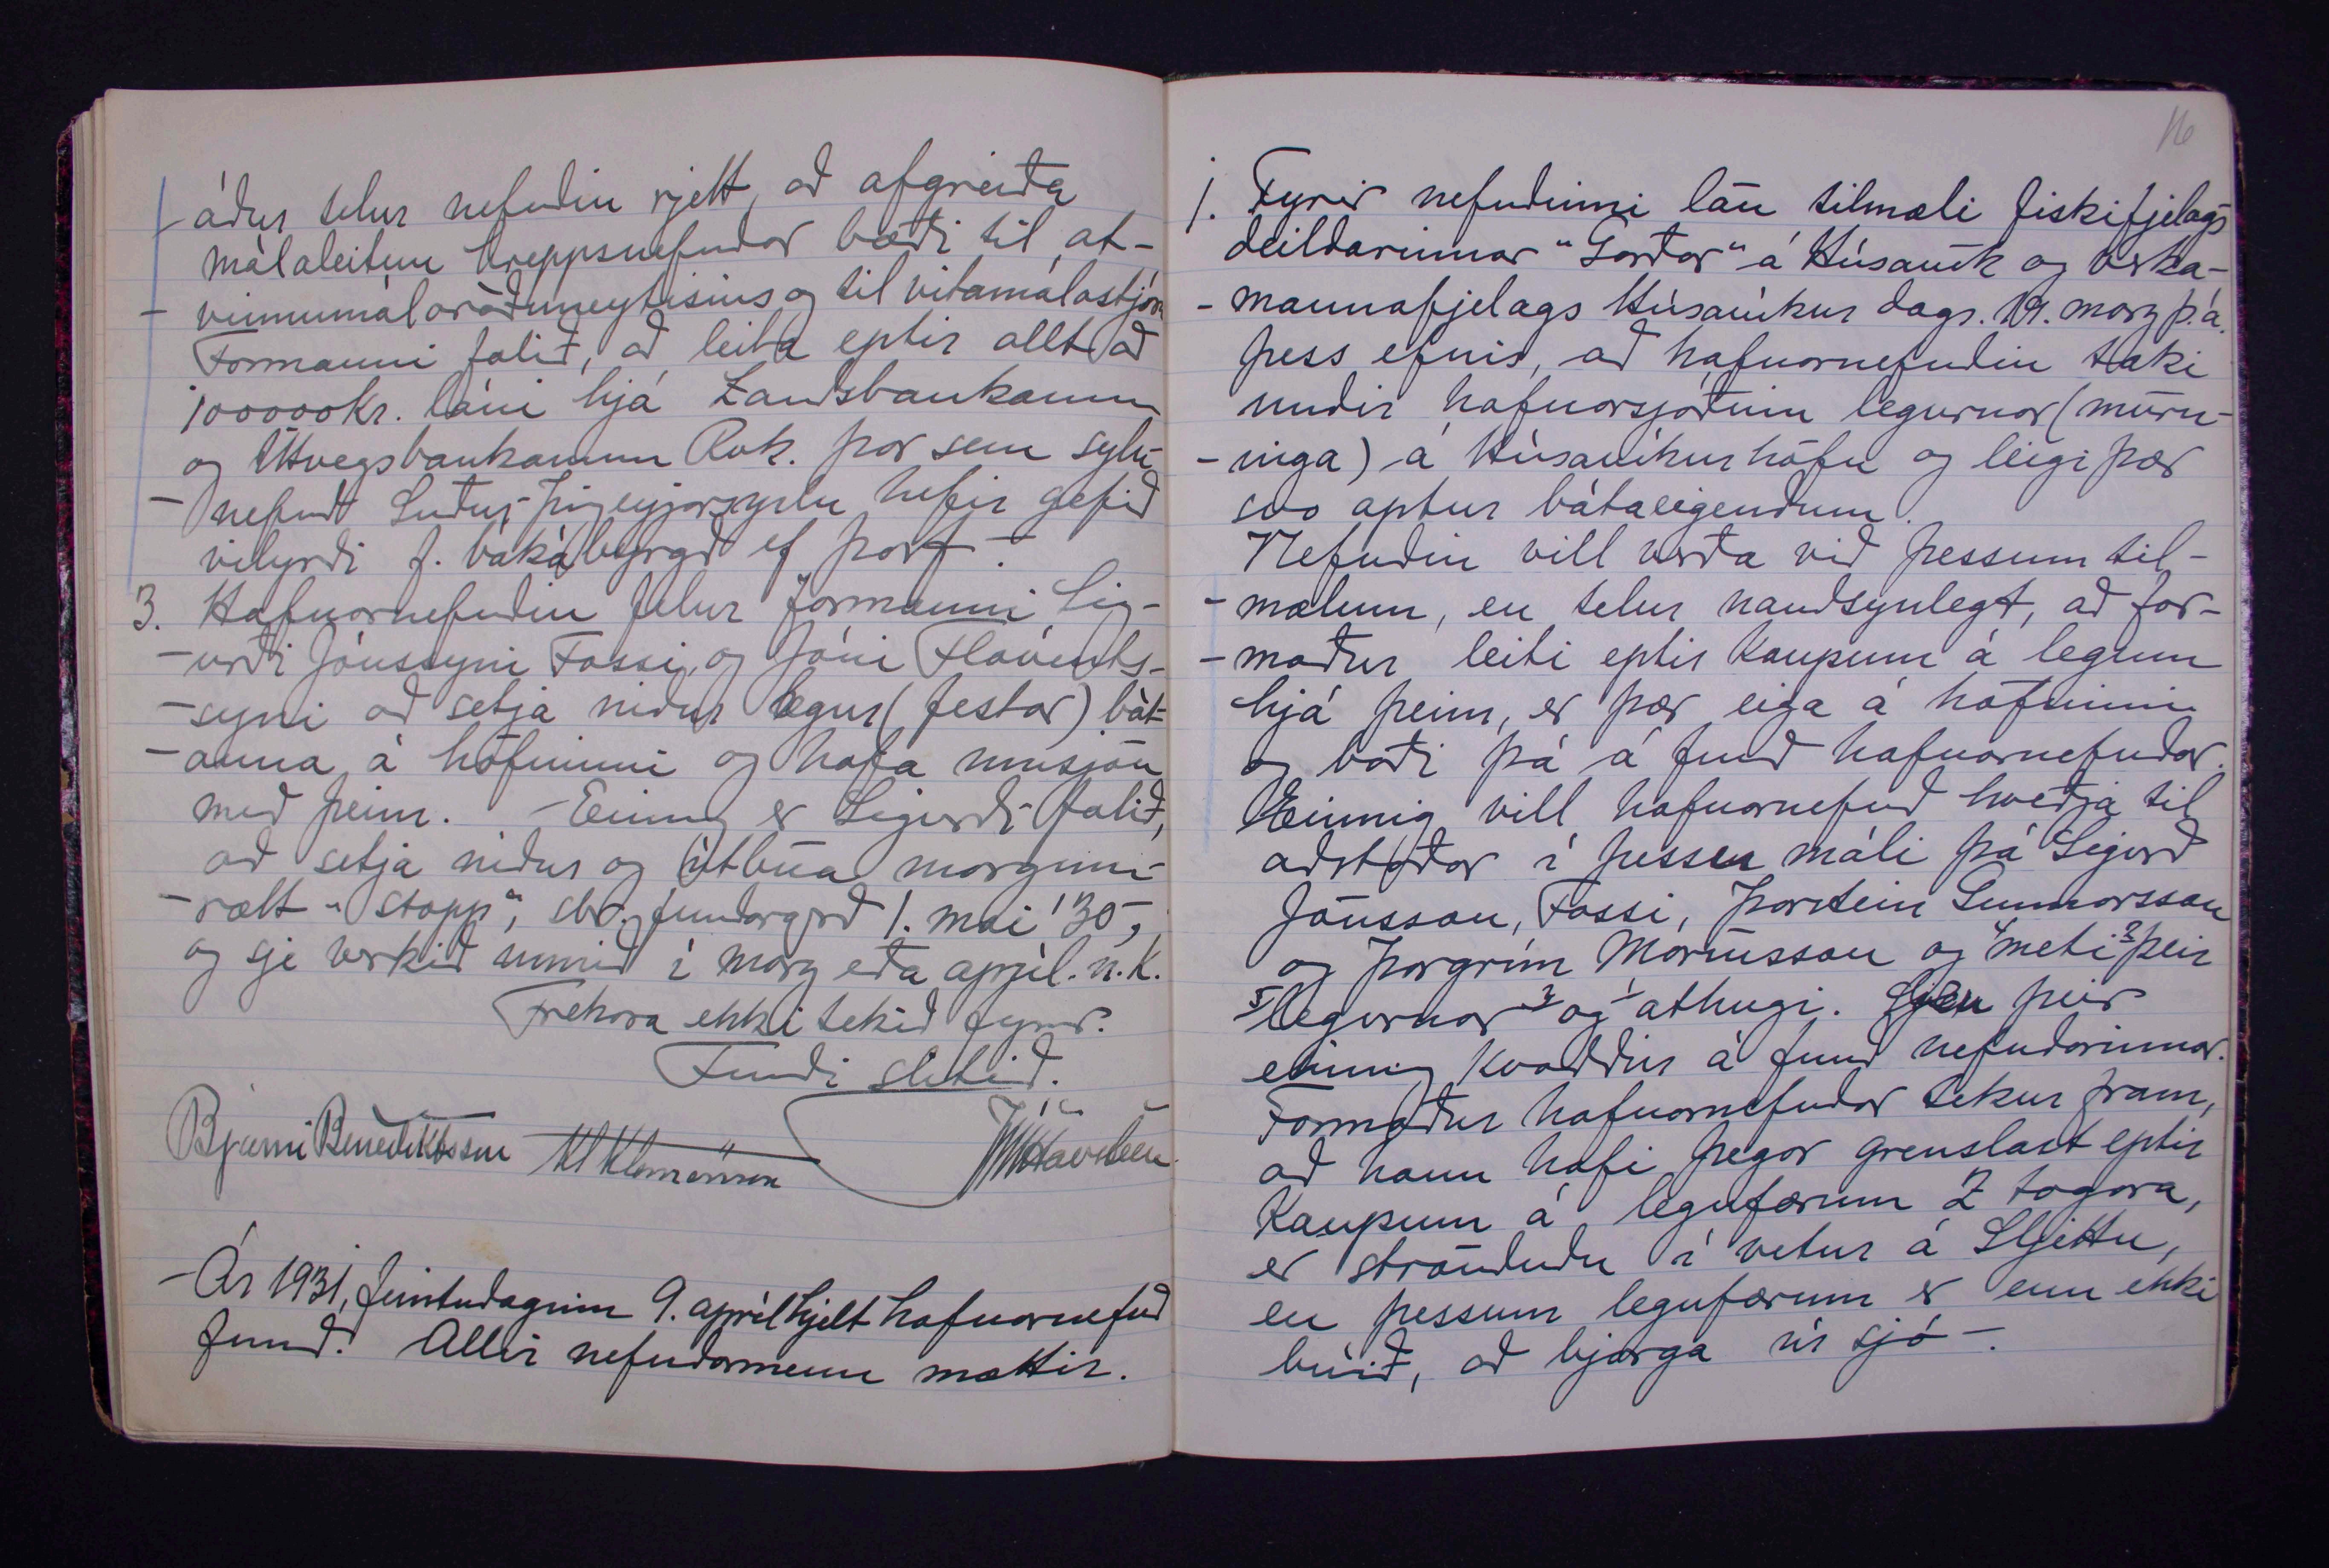 -áður telur nefndin rjett, að afgreiða
málaleitun hreppsnefndar bæði til at-
- vinnumálaráðuneytisins og til vitamálastjóra
Formanni falið, að leita eptir allt að
100000kr. láni hjá Landsbankanum
og Útvegsbankanum Rvk. þar sem sýslu
- nefnd Suður-Þingeyjarsýslu hefir gefið
vilyrði f. bakábyrgð ef þarf -
3. Hafnarnefndin felur formanni, Sig-
- urði Jónssyni Fossi, og Jóni Flóvents-
- syni að setja niður legur (festar) bát-
- anna á höfninni og hafa umsjón
með þeim. - Einnig er Sigurði falið,
að setja niður og útbúa margum-
- rætt "stopp", sbr. fundargerð 1. maí '30,
og sje verkið unnið í marz eða apríl. n.k.
Frekara ekki tekið fyrir.
Fundi slitið.
Bjarni Benediktsson Kl Klemensson JHHavsteen
- Ár 1931, fimtudaginn 9. apríl hjelt hafnarnefnd
fund. Allir nefndarmenn mættir.
16
1. Fyrir nefndinni láu tilmæli fiskifjelags
deildarinnar "Garðar" á Húsavík og verka-
- mannafjelags Húsavíkur dags. 19. marz þ.á.
þess efnis, að hafnarnefndin taki
undir hafnarsjóðinn legurnar (múrn-
- inga) á Húsavíkurhöfn og leigi þær
svo aptur bátaeigendum.
Nefndin vill verða við þessum til-
- mælum, en telur nauðsynlegt, að for-
- maður leiti eptir kaupum á legum
hjá þeim, er þær eiga á höfninni
og boði þá á fund hafnarnefndar.
Einnig vill hafnarnefnd kveðja til
aðstoðar í þessu máli þá Sigurð
Jónsson, Fossi, Þorstein Gunnarsson
og Þorgrím Maríusson og 4 meti 3 þeir
5 legurnar 2 og 1 athugi. Sjeu þeir
einnig kvaddir á fund nefndarinnar.
Formaður hafnarnefndar tekur fram,
að hann hafi þegar grenslast eptir
kaupum á legufærum 2 togara,
er strönduðu í vetur á Sljettu,
en þessum legufærum er enn ekki
búið, að bjarga úr sjó -.